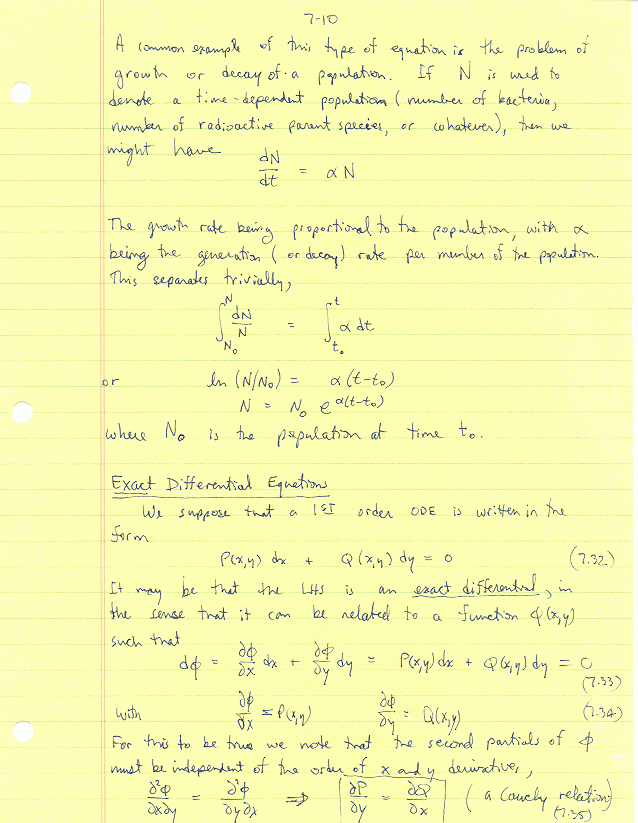 7-10
A common example of this type of equation is the problem of
growth or decay of a population. If N is used to
denote a time-dependent population (number of bacteria,
number of radioactive parent species, or whatever), then we
might have
dN/dt = αN
The growth rate being proportional to the population, with α
being the generation (or decay) rate per member of the population.
This separates trivially,
∫_{N₀}^{N} dN/N = ∫_{t₀}^{t} α dt
or ln (N/N₀) = α(t-t₀)
N = N₀ e^{α(t-t₀)}
where N₀ is the population at time t₀.
Exact Differential Equations
We suppose that a 1ST order ODE is written in the
form
P(x,y) dx + Q(x,y) dy = 0 (7.32)
It may be that the LHS is an exact differential, in
the sense that it can be related to a function φ(x,y)
such that
dφ = ∂φ/∂x dx + ∂φ/∂y dy = P(x,y) dx + Q(x,y) dy = 0
(7.33)
with ∂φ/∂x = P(x,y) ∂φ/∂y = Q(x,y) (7.34)
For this to be true we note that the second partials of φ
must be independent of the order of x and y derivatives,
∂²φ/∂x∂y = ∂²φ/∂y∂x ⇒ ∂P/∂y = ∂Q/∂x (a Cauchy relation)
(7.35)